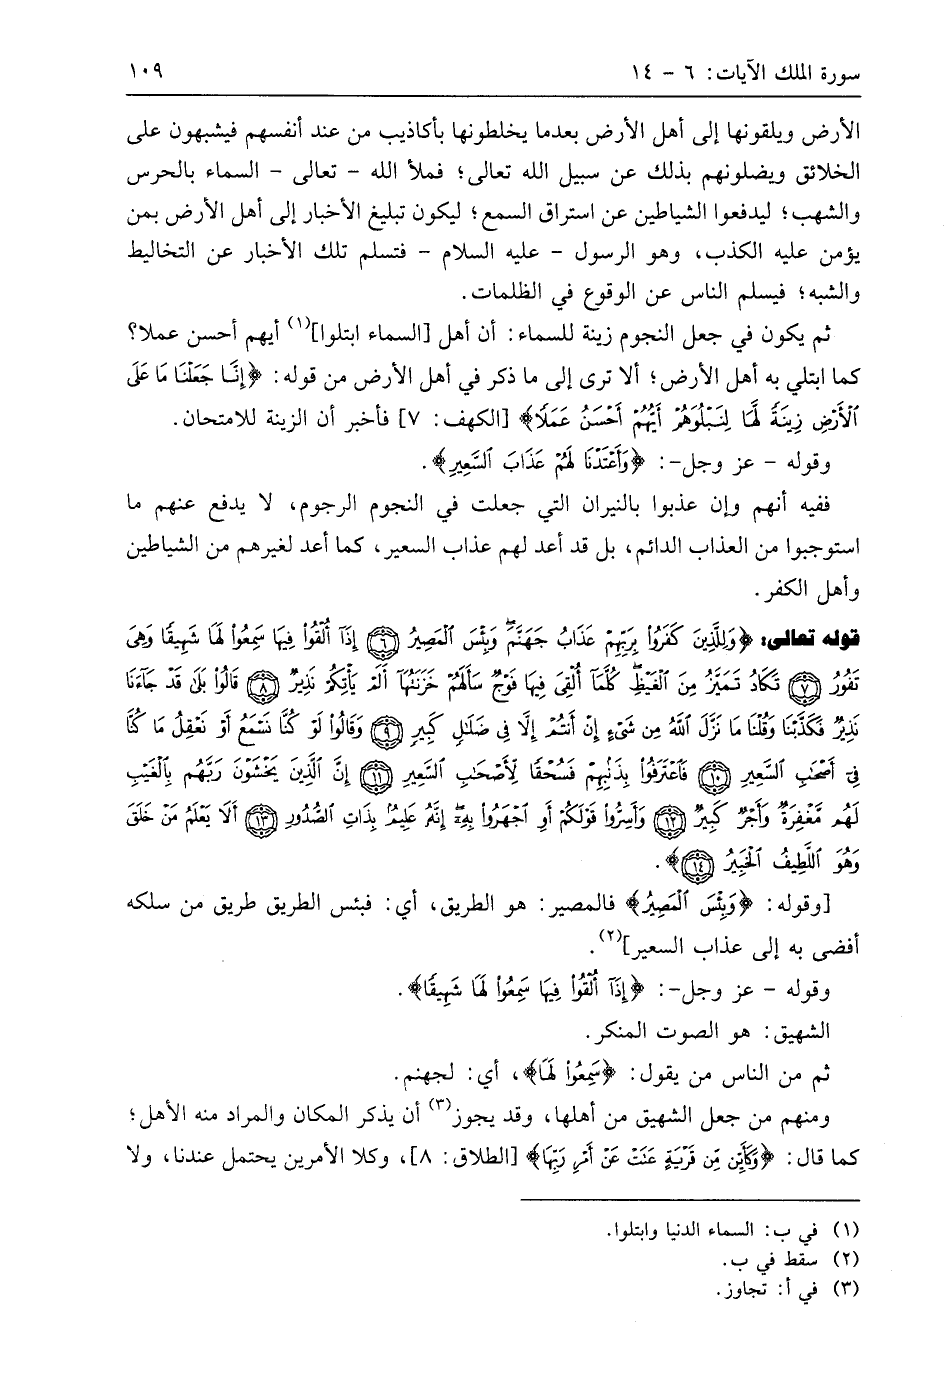 سورة الملك الآيات: ٦ - ١٤ ١٠٩
الأرض ويلقونها إلى أهل الأرض بعدما يخلطونها بأكاذيب من عند أنفسهم فيشبهون على
الخلائق ويضلونهم بذلك عن سبيل الله تعالى؛ فملأ الله - تعالى - السماء بالحرس
والشهب؛ ليدفعوا الشياطين عن استراق السمع؛ ليكون تبليغ الأخبار إلى أهل الأرض بمن
يؤمن عليه الكذب، وهو الرسول - عليه السلام - فتسلم تلك الأخبار عن التخاليط
والشبه؛ فيسلم الناس عن الوقوع في الظلمات.
ثم يكون في جعل النجوم زينة للسماء: أن أهل [السماء ابتلوا](١) أيهم أحسن عملا؟
كما ابتلي به أهل الأرض؛ ألا ترى إلى ما ذكر في أهل الأرض من قوله: ﴿إِنَّا جَعَلْنَا مَا عَلَى
ٱلْأَرْضِ زِينَةً لَّهَا لِنَبْلُوَهُمْ أَيُّهُمْ أَحْسَنُ عَمَلًا﴾ [الكهف: ٧] فأخبر أن الزينة للامتحان.
وقوله - عز وجل-: ﴿وَأَعْتَدْنَا لَهُمْ عَذَابَ ٱلسَّعِيرِ﴾.
ففيه أنهم وإن عذبوا بالنيران التي جعلت في النجوم الرجوم، لا يدفع عنهم ما
استوجبوا من العذاب الدائم، بل قد أعد لهم عذاب السعير، كما أعد لغيرهم من الشياطين
وأهل الكفر.
قوله تعالى: ﴿وَلِلَّذِينَ كَفَرُوا۟ بِرَبِّهِمْ عَذَابُ جَهَنَّمَ ۖ وَبِئْسَ ٱلْمَصِيرُ ٦ إِذَآ أُلْقُوا۟ فِيهَا سَمِعُوا۟ لَهَا شَهِيقًا وَهِىَ
تَفُورُ ٧ تَكَادُ تَمَيَّزُ مِنَ ٱلْغَيْظِ ۖ كُلَّمَآ أُلْقِىَ فِيهَا فَوْجٌ سَأَلَهُمْ خَزَنَتُهَآ أَلَمْ يَأْتِكُمْ نَذِيرٌ ٨ قَالُوا۟ بَلَىٰ قَدْ جَآءَنَا
نَذِيرٌ فَكَذَّبْنَا وَقُلْنَا مَا نَزَّلَ ٱللَّهُ مِن شَىْءٍ إِنْ أَنتُمْ إِلَّا فِى ضَلَٰلٍ كَبِيرٍ ٩ وَقَالُوا۟ لَوْ كُنَّا نَسْمَعُ أَوْ نَعْقِلُ مَا كُنَّا
فِىٓ أَصْحَٰبِ ٱلسَّعِيرِ ١٠ فَٱعْتَرَفُوا۟ بِذَنۢبِهِمْ فَسُحْقًا لِّأَصْحَٰبِ ٱلسَّعِيرِ ١١ إِنَّ ٱلَّذِينَ يَخْشَوْنَ رَبَّهُم بِٱلْغَيْبِ
لَهُم مَّغْفِرَةٌ وَأَجْرٌ كَبِيرٌ ١٢ وَأَسِرُّوا۟ قَوْلَكُمْ أَوِ ٱجْهَرُوا۟ بِهِۦٓ ۖ إِنَّهُۥ عَلِيمٌۢ بِذَاتِ ٱلصُّدُورِ ١٣ أَلَا يَعْلَمُ مَنْ خَلَقَ
وَهُوَ ٱللَّطِيفُ ٱلْخَبِيرُ ١٤﴾.
[وقوله: ﴿وَبِئْسَ ٱلْمَصِيرُ﴾ فالمصير: هو الطريق، أي: فبئس الطريق طريق من سلكه
أفضى به إلى عذاب السعير](٢).
وقوله - عز وجل-: ﴿إِذَآ أُلْقُوا۟ فِيهَا سَمِعُوا۟ لَهَا شَهِيقًا﴾.
الشهيق: هو الصوت المنكر.
ثم من الناس من يقول: ﴿سَمِعُوا۟ لَهَا﴾، أي: لجهنم.
ومنهم من جعل الشهيق من أهلها، وقد يجوز(٣) أن يذكر المكان والمراد منه الأهل؛
كما قال: ﴿وَكَأَيِّن مِّن قَرْيَةٍ عَتَتْ عَنْ أَمْرِ رَبِّهَا﴾ [الطلاق: ٨]، وكلا الأمرين يحتمل عندنا، ولا
(١) في ب: السماء الدنيا وابتلوا.
(٢) سقط في ب.
(٣) في أ: تجاوز.